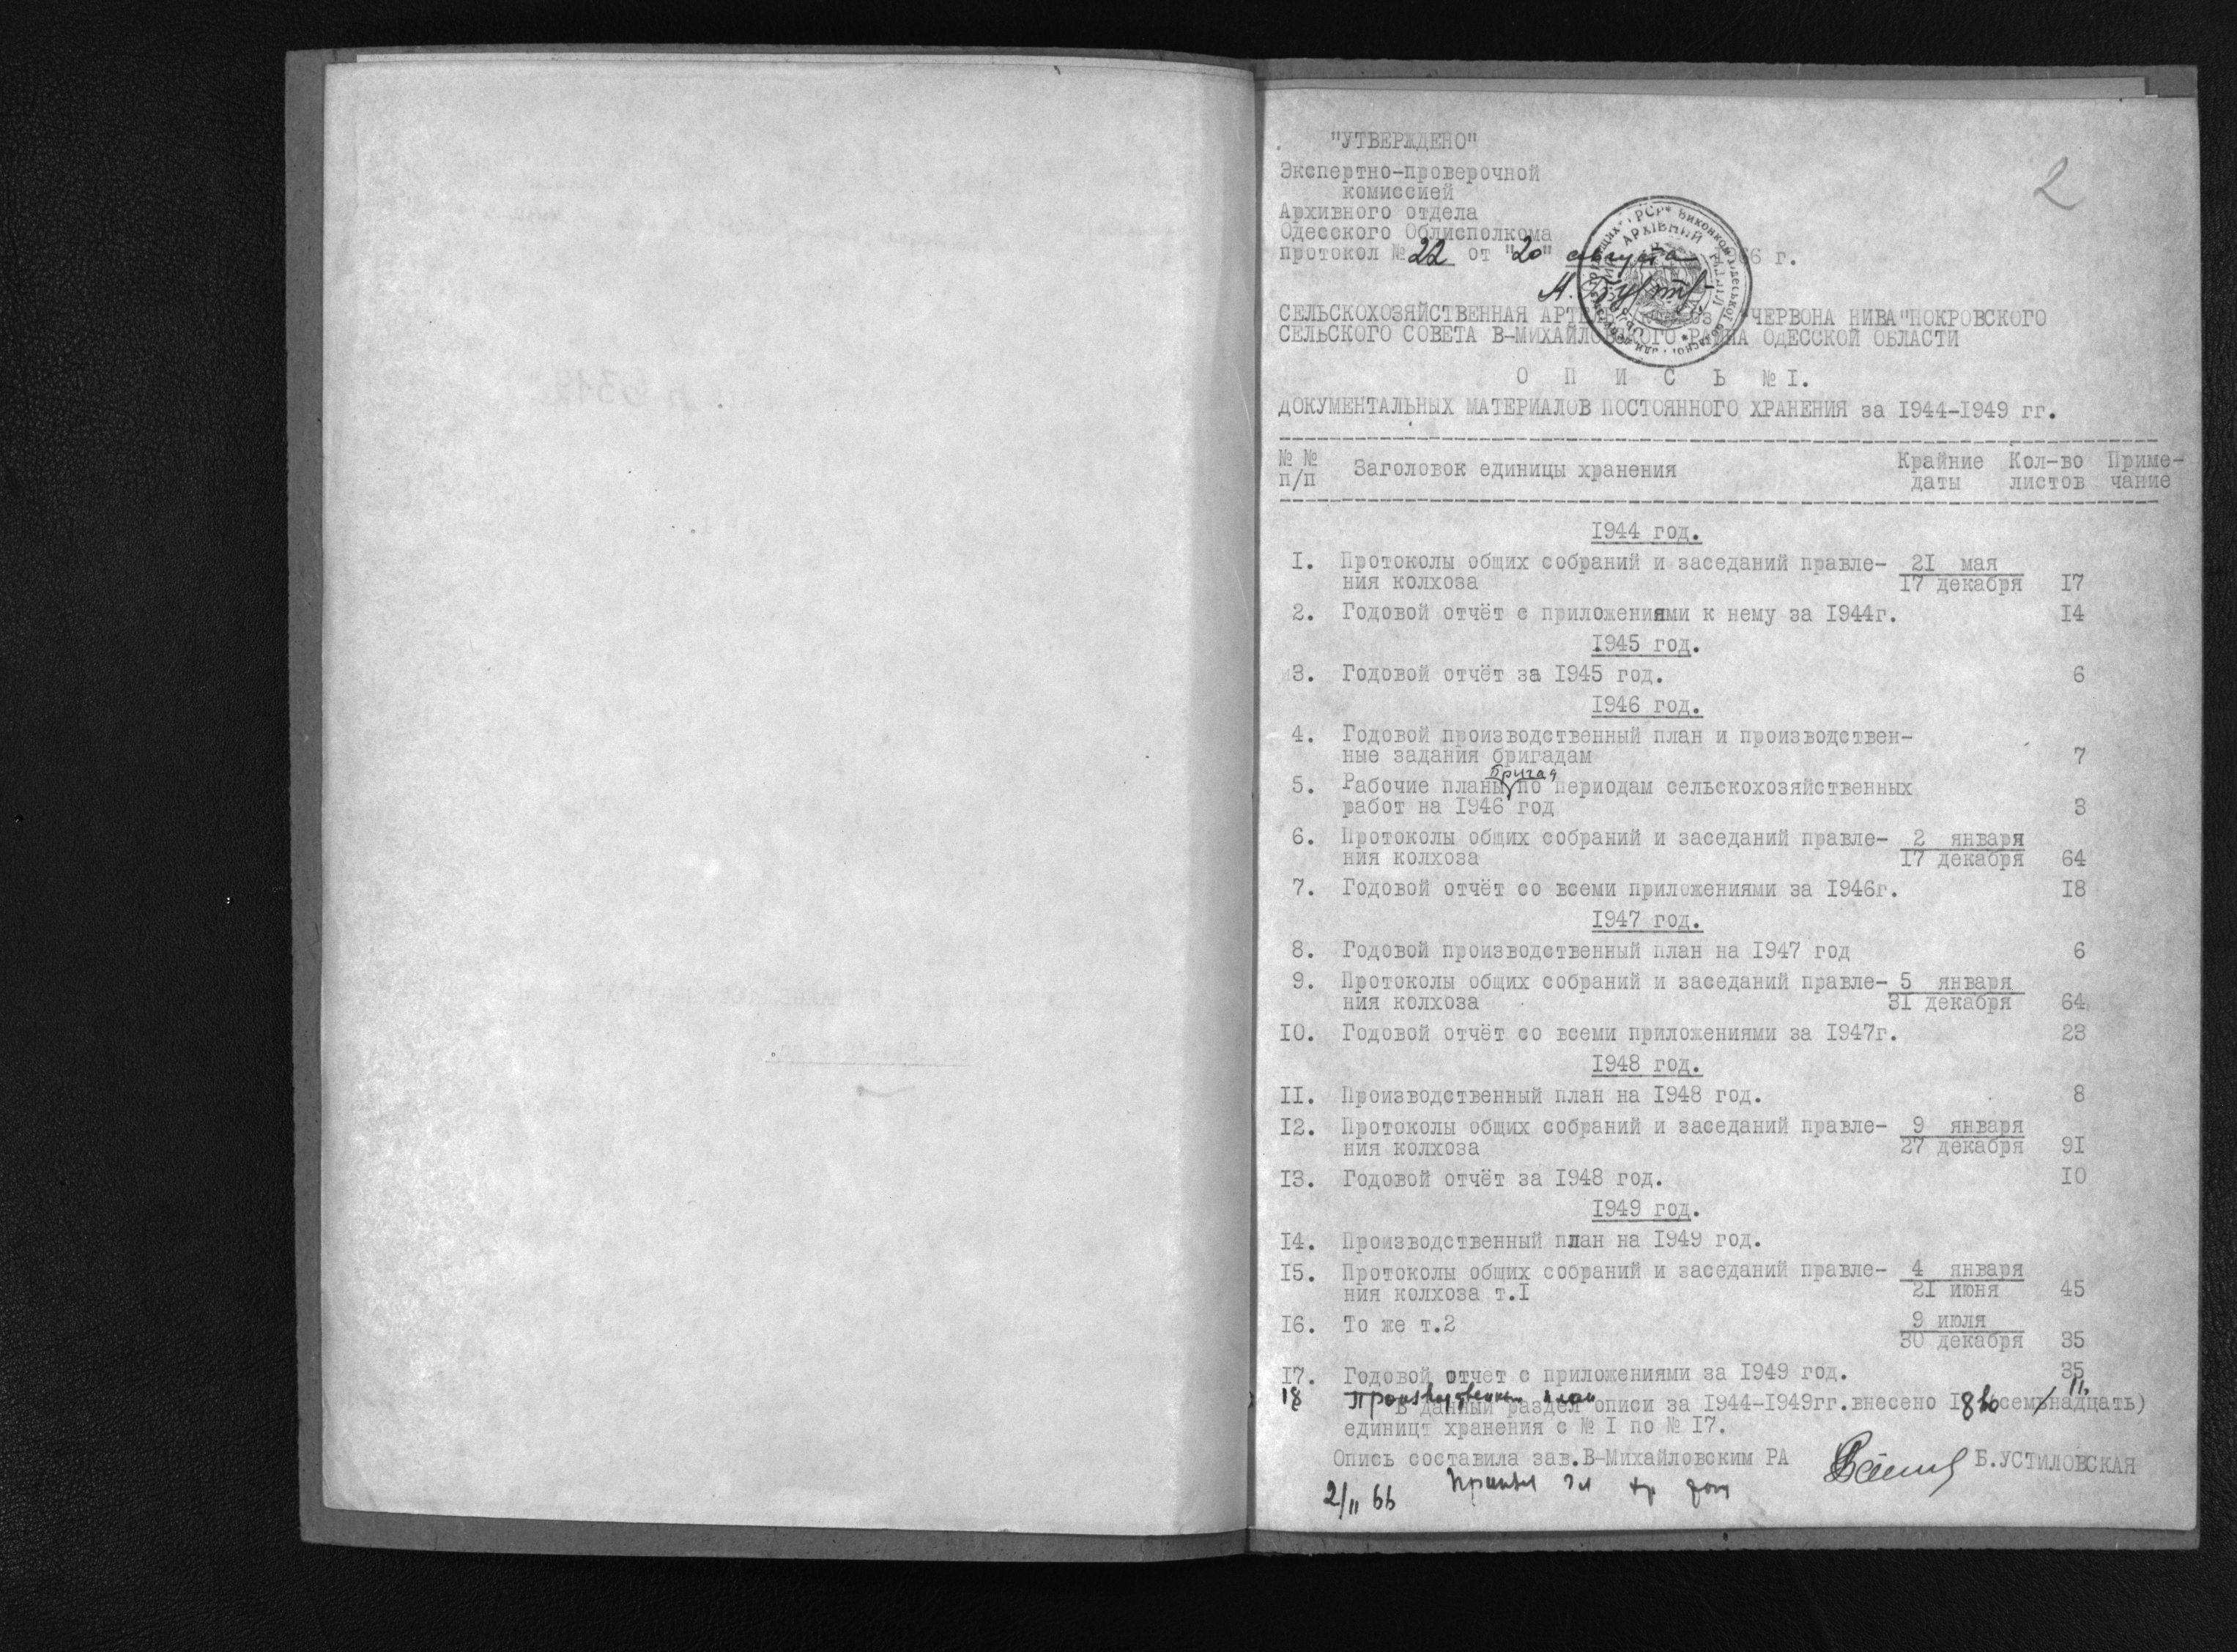 2
"УТВЕРЖДЕНО"
Экспертно-проверочной
комиссией
Архивного отдела
Одесского Облисполкома
протокол № 22 от "20" августа 66 г.
АРХІВНИЙ
СЕЛЬСКОХОЗЯЙСТВЕННАЯ "ЧЕРВОНА НИВА" ПОКРОВСКОГО
СЕЛЬСКОГО СОВЕТА В-МИХАЙЛОВСКОГО РАЙОНА ОДЕССКОЙ ОБЛАСТИ
О П И С Ь № I.
ДОКУМЕНТАЛЬНЫХ МАТЕРИАЛОВ ПОСТОЯННОГО ХРАНЕНИЯ за I944-I949 гг.
№ № Заголовок единицы хранения Крайние Кол-во Приме-
п/п даты листов чание
I944 год.
I. Протоколы общих собраний и заседаний правле- 2I мая
ния колхоза I7 декабря I7
2. Годовой отчёт с приложениями к нему за I944г. I4
I945 год.
3. Годовой отчёт за I945 год. 6
I946 год.
4. Годовой производственный план и производствен-
ные задания бригадам 7
бригад
5. Рабочие планы по периодам сельскохозяйственных
работ на I946 год 3
6. Протоколы общих собраний и заседаний правле- 2 января
ния колхоза I7 декабря 64
7. Годовой отчёт со всеми приложениями за I946г. I8
I947 год.
8. Годовой производственный план на I947 год 6
9. Протоколы общих собраний и заседаний правле- 5 января
ния колхоза 3I декабря 64
I0. Годовой отчёт со всеми приложениями за I947г. 23
I948 год.
II. Производственный план на I948 год. 8
I2. Протоколы общих собраний и заседаний правле- 9 января
ния колхоза 27 декабря 9I
I3. Годовой отчёт за I948 год. I0
I949 год.
I4. Производственный план на I949 год.
I5. Протоколы общих собраний и заседаний правле- 4 января
ния колхоза т.I 2I июня 45
I6. То же т.2 9 июля
30 декабря 35
I7. Годовой отчет с приложениями за I949 год. 35
18 Производственный план 11.
В данный раздел описи за I944-I949гг.внесено I8 восемьнадцать)
единицт хранения с № I по № I7.
Опись составила зав.В-Михайловским РА Б.УСТИЛОВСКАЯ
2/II 66